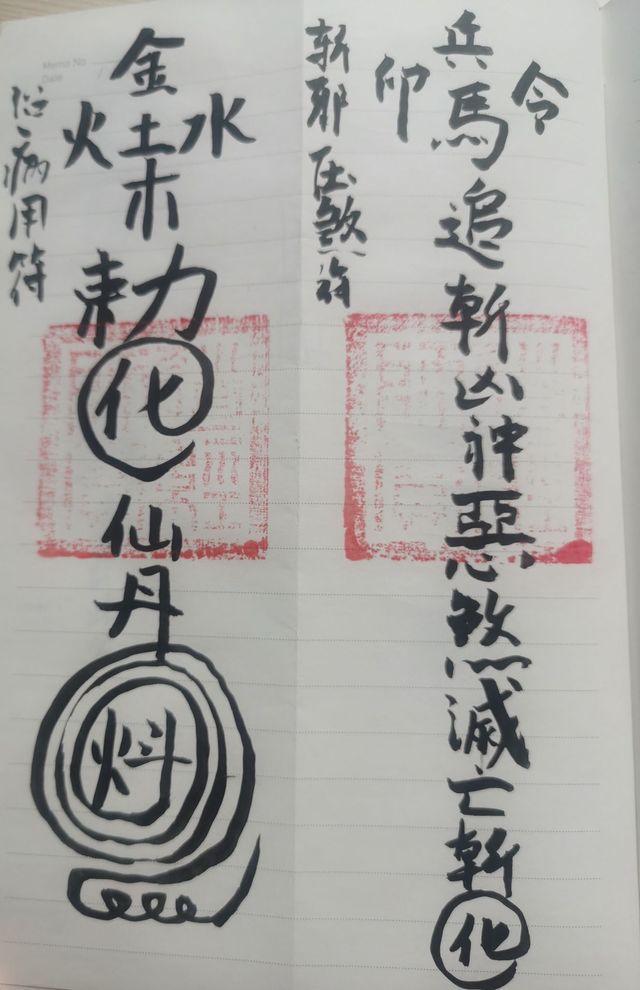 令
兵馬追斬凶神惡煞滅亡斬化
印
斬邪压煞符
水
金土木勅化仙丹炓
火
治病用符
Memo No.
Date